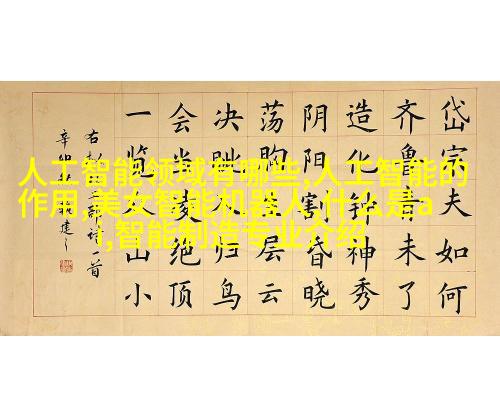 岱宗夫如何
齐鲁青未了
造化钟神秀
阴阳割昏晓
荡胸生层云
决眦入归鸟
会当凌绝顶
一览众山小
右诗一首
辛卯建
人工智能领域有哪些,人工智能的
作用,美女智能机器人,什么是a
i,智能制造专业介绍